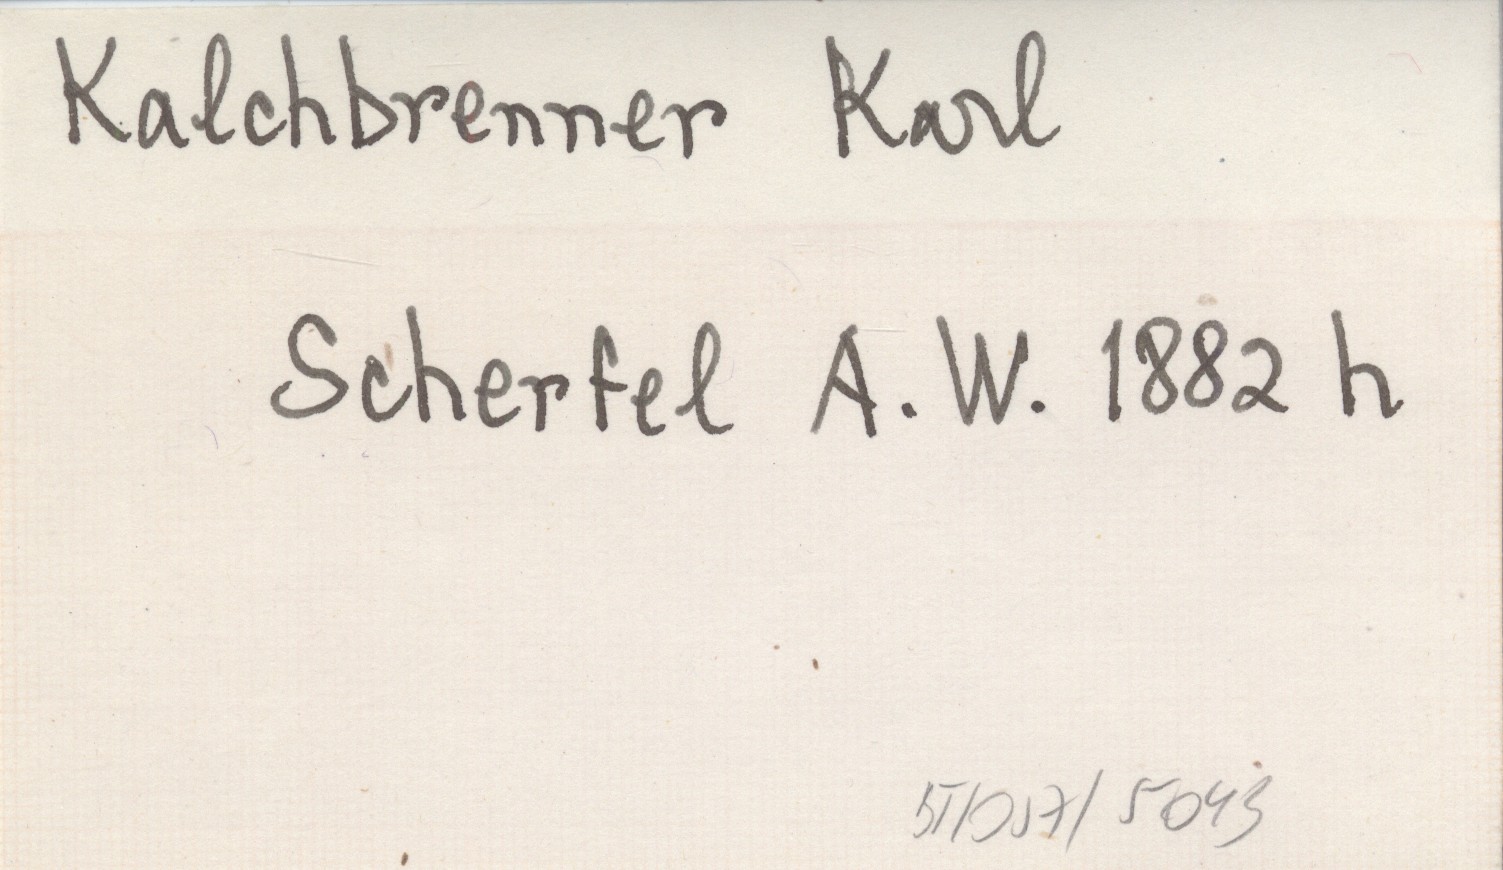 Kalchbrenner Karl
Scherfel A.W. 1882 h
5043